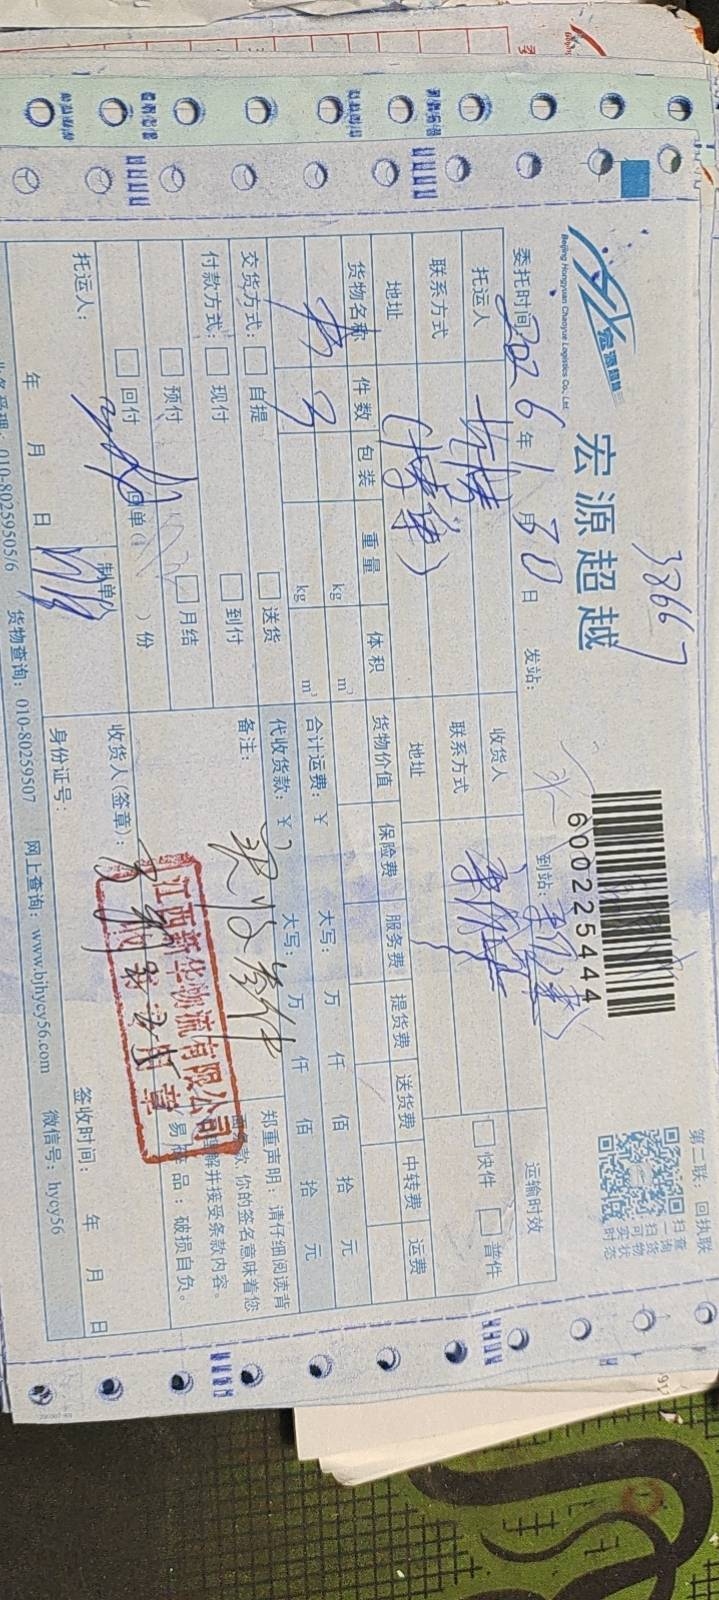 38667
第二联：回执联
扫一扫可实时
查询货物状态
宏源超越
Beijing Hongyuan Chaoyue Logistics Co., Ltd.
宏源超越
600225444
委托时间：2026年1月30日
发站：
到站：
运输时效
托运人
收货人
快件
普件
联系方式
联系方式
地址
地址
货物名称
件数
包装
重量
体积
货物价值
保险费
服务费
提货费
送货费
中转费
运费
kg
m³
kg
m³
合计运费：￥
大写：
万
仟
佰
拾
元
代收货款：￥
大写：
万
仟
佰
拾
元
交货方式：
自提
送货
备注：
付款方式：
现付
到付
预付
月结
回付
回单（
）份
郑重声明：请仔细阅读背
面条款，你的签名意味着您
理解并接受条款内容。
易碎品：破损自负。
江西新华物流有限公司
托运人：
制单人
收货人(签章)：
年
月
日
身份证号：
签收时间：
年
月
日
业务受理：010-80259505/6
货物查询：010-80259507
网上查询：www.bjhycy56.com
微信号：hycy56